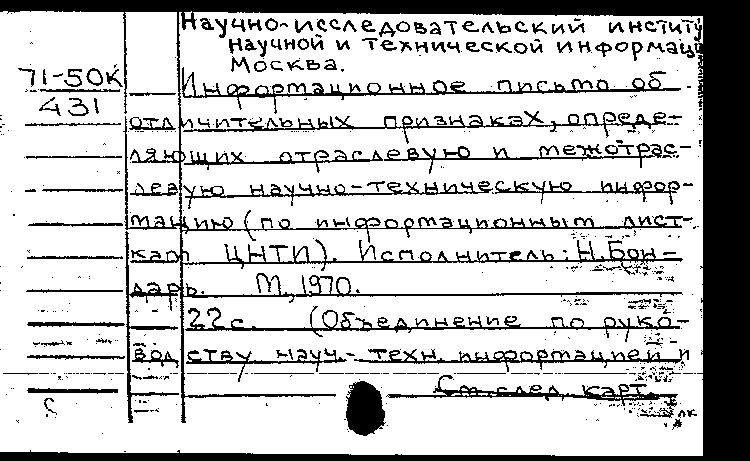 Научно-исследовательский институ
научной и технической информац
Москва.
71-50К
431
Информационное письмо об
отличительных признаках, опреде-
ляющих отраслевую и межотрас-
левую научно-техническую инфор-
мацию (по информационным лист-
кам ЦНТИ). Исполнитель: Н. Бон-
дарь. М., 1970.
22 с. (Объединение по руко-
водству науч.-техн. информацией и
См. след. карт.